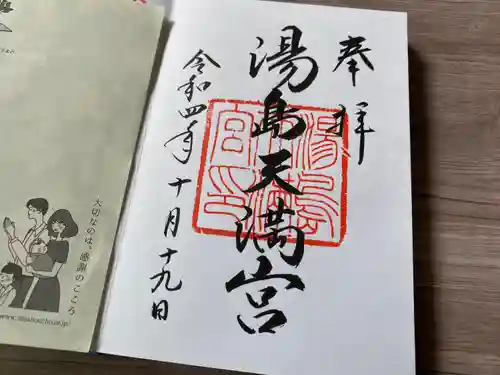 奉拝
湯島天満宮
令和四年十月十九日
大切なのは、感謝のこころ